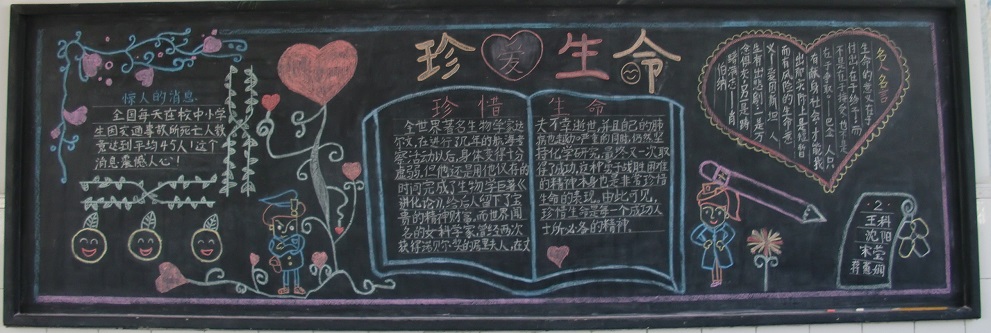 珍爱生命
惊人的消息
全国每天在校中小学
生因交通事故所死亡人数
竟达到平均45人！这个
消息震撼人心！
珍惜
全世界著名生物学家达
尔文，在进行几年的航海考
察活动以后，身体变得十分
虚弱，但他还是用他仅存的
时间完成了生物学巨著《
进化论》，给后人留下了宝
贵的精神财富。而世界闻
名的女科学家，曾经两次
获得诺贝尔奖的居里夫人，在丈
生命
夫不幸逝世，并且自己的肺
病也趋于严重的同时，仍然坚
持化学研究，最终又一次取
得了成功，这种勇于战胜困难
的精神本身也是非常珍惜
生命的表现。由此可见，
珍惜生命是每一个成功人
士所必备的精神。
名人名言
生命的意义在于
付出，在于给予，而
不是在于接受，也不是
在于争取。—巴金
·2·
王科
沈阳
宋莹